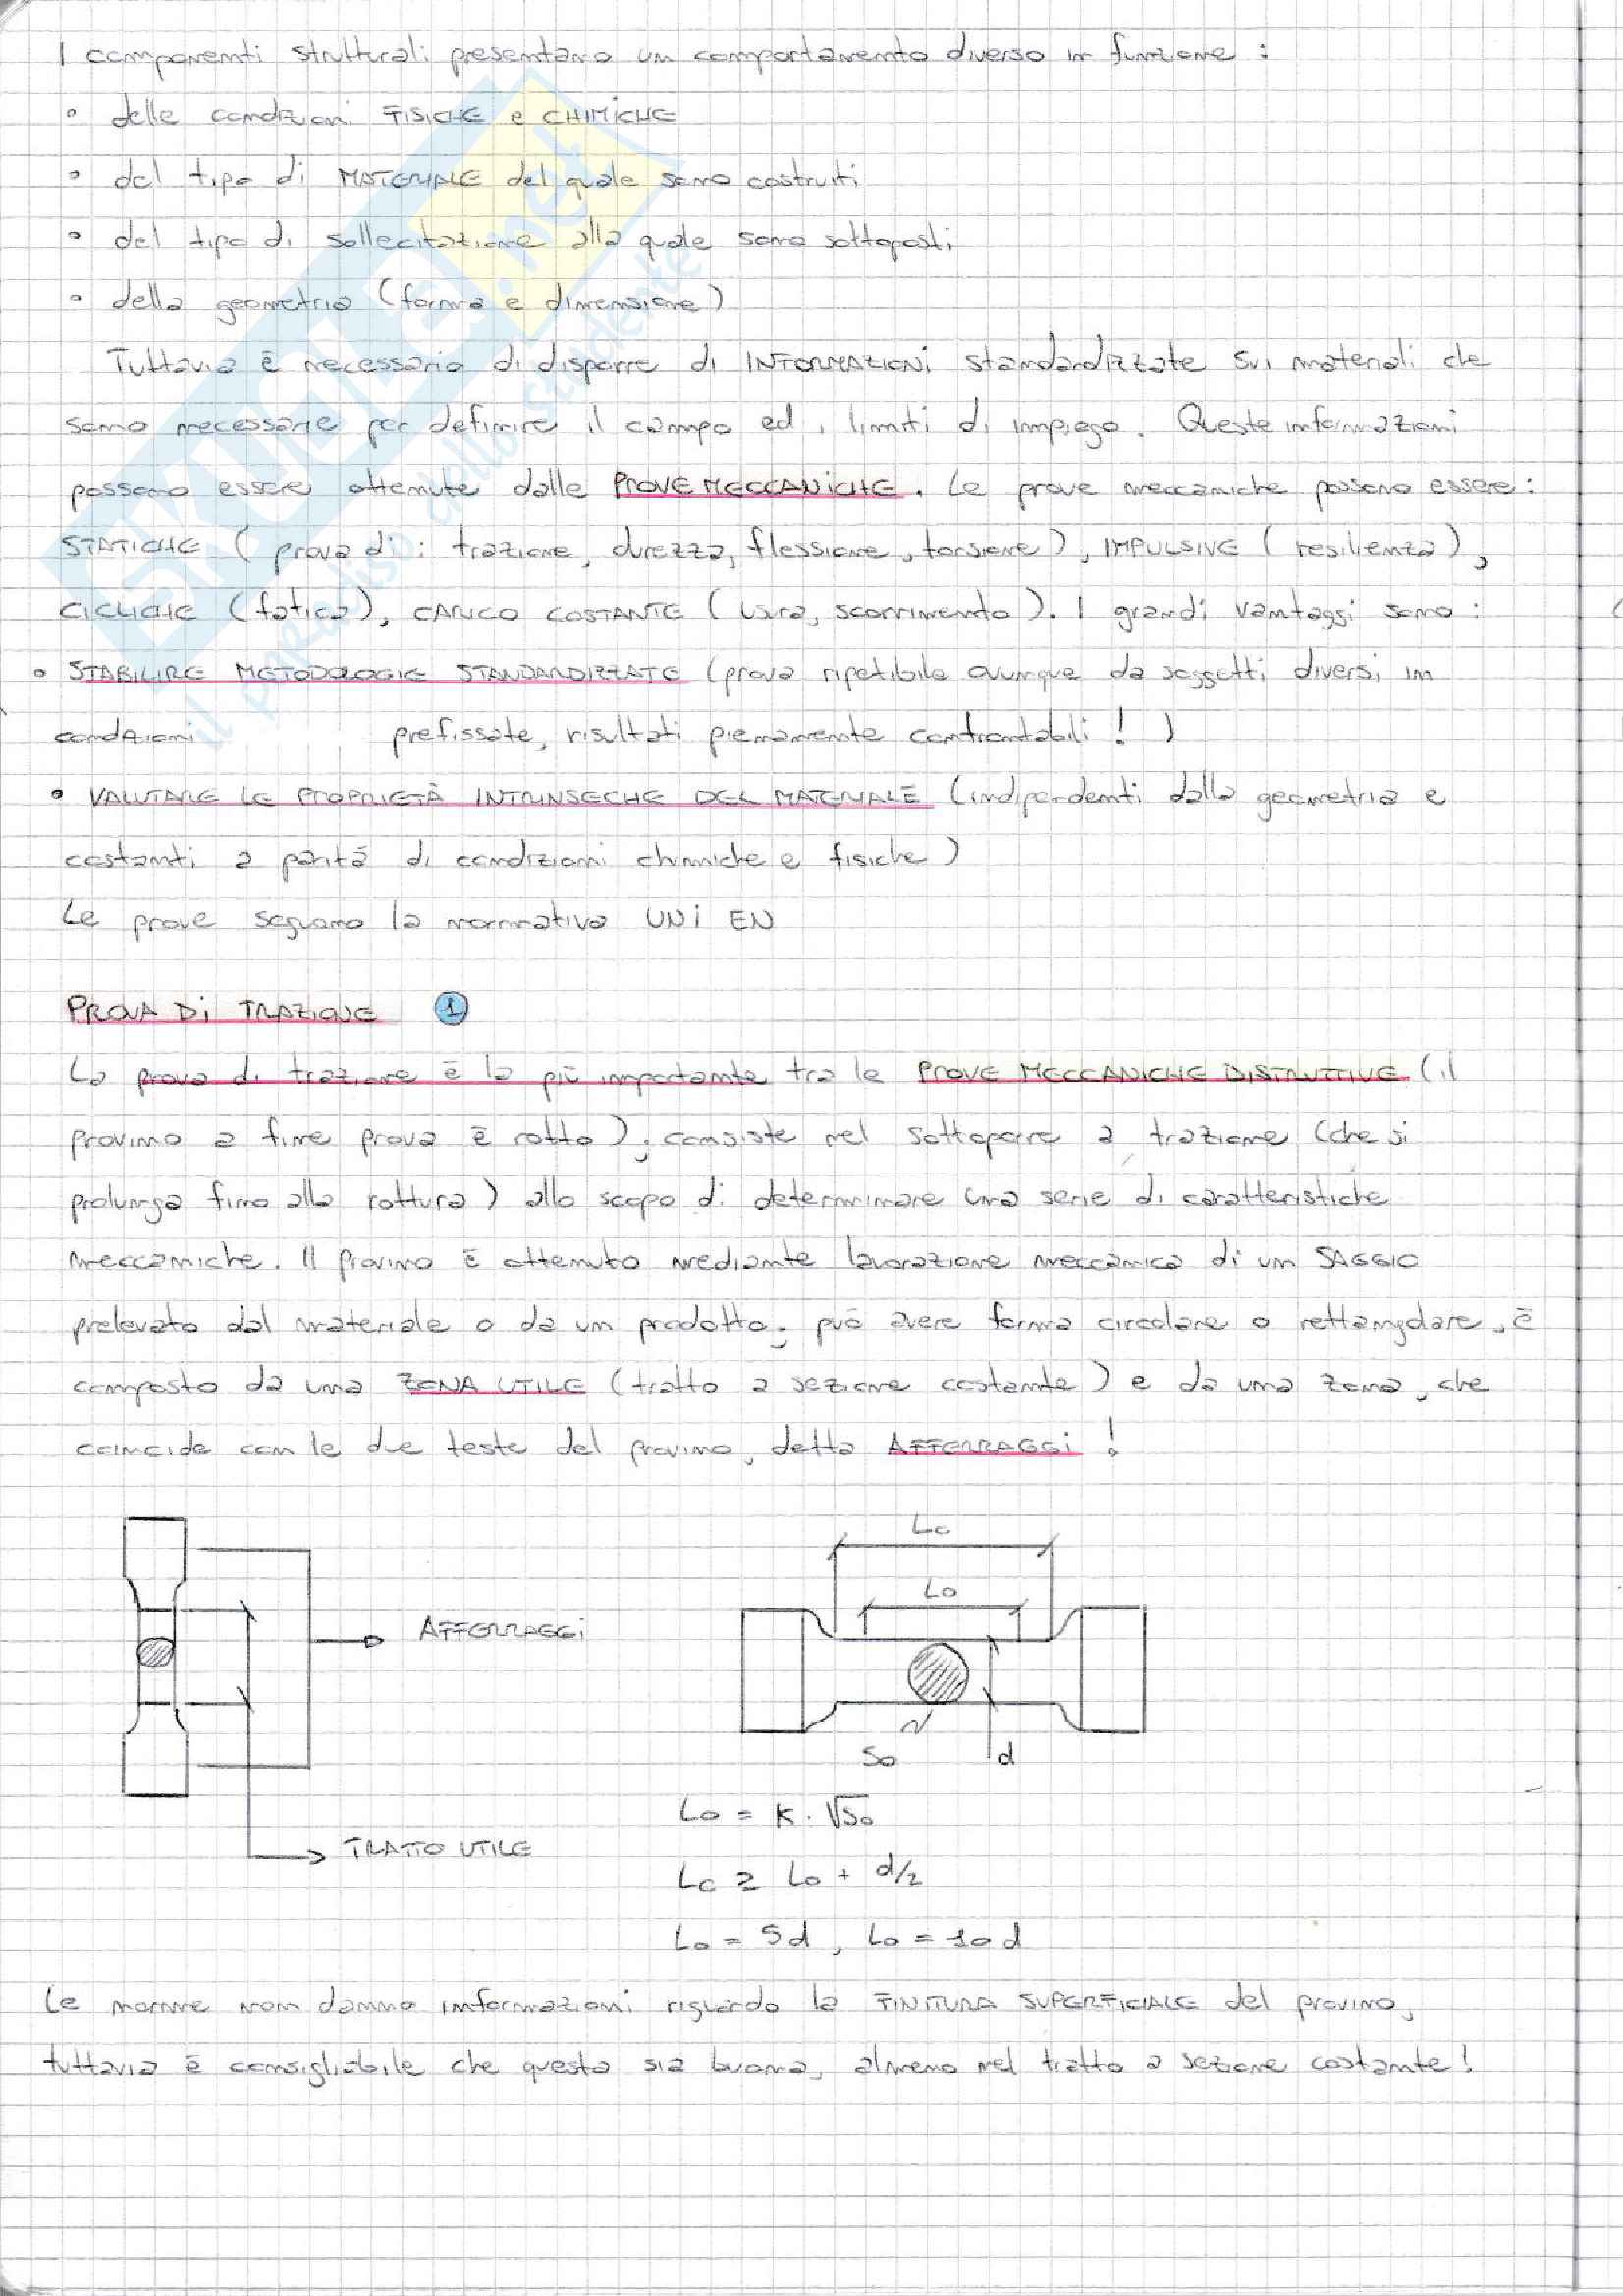 I componenti strutturali presentano un comportamento diverso in funzione :
• delle condizioni FISICHE e CHIMICHE
• del tipo di MATERIALE del quale sono costruiti
• del tipo di sollecitazione alla quale sono sottoposti
• della geometria (forma e dimensione)
Tuttavia è necessario di disporre di INFORMAZIONI standardizzate sui materiali che
sono necessarie per definire il campo ed i limiti di impiego. Queste informazioni
possono essere ottenute dalle PROVE MECCANICHE. Le prove meccaniche possono essere:
STATICHE ( prova di : trazione, durezza, flessione, torsione), IMPULSIVE ( resilienza),
CICLICHE (fatica), CARICO COSTANTE ( usura, scorrimento). I grandi vantaggi sono :
• STABILIRE METODOLOGIE STANDARDIZZATE (prova ripetibile ovunque da soggetti diversi in
condizioni prefissate, risultati pienamente confrontabili ! )
• VALUTARE LE PROPRIETÀ INTRINSECHE DEL MATERIALE (indipendenti dalla geometria e
costanti a parità di condizioni chimiche e fisiche )
Le prove seguono la normativa UNI EN
PROVA DI TRAZIONE 1
La prova di trazione è la più importante tra le PROVE MECCANICHE DISTRUTTIVE (il
provino a fine prova è rotto ); consiste nel sottoporre a trazione (che si
prolunga fino alla rottura ) allo scopo di determinare una serie di caratteristiche
meccaniche. Il provino è ottenuto mediante lavorazione meccanica di un SAGGIO
prelevato dal materiale o da un prodotto; può avere forma circolare o rettangolare, è
composto da una ZONA UTILE (tratto a sezione costante ) e da una zona, che
coincide con le due teste del provino, detta AFFERRAGGI !
AFFERRAGGI
TRATTO UTILE
Lc
Lo
So
d
Lo = K · √So
Lc ≥ Lo + d/2
Lo = 5d , Lo = 10d
Le norme non danno informazioni riguardo la FINITURA SUPERFICIALE del provino,
tuttavia è consigliabile che questa sia buona, almeno nel tratto a sezione costante !
SKUOLA.net
il paradiso dello studente